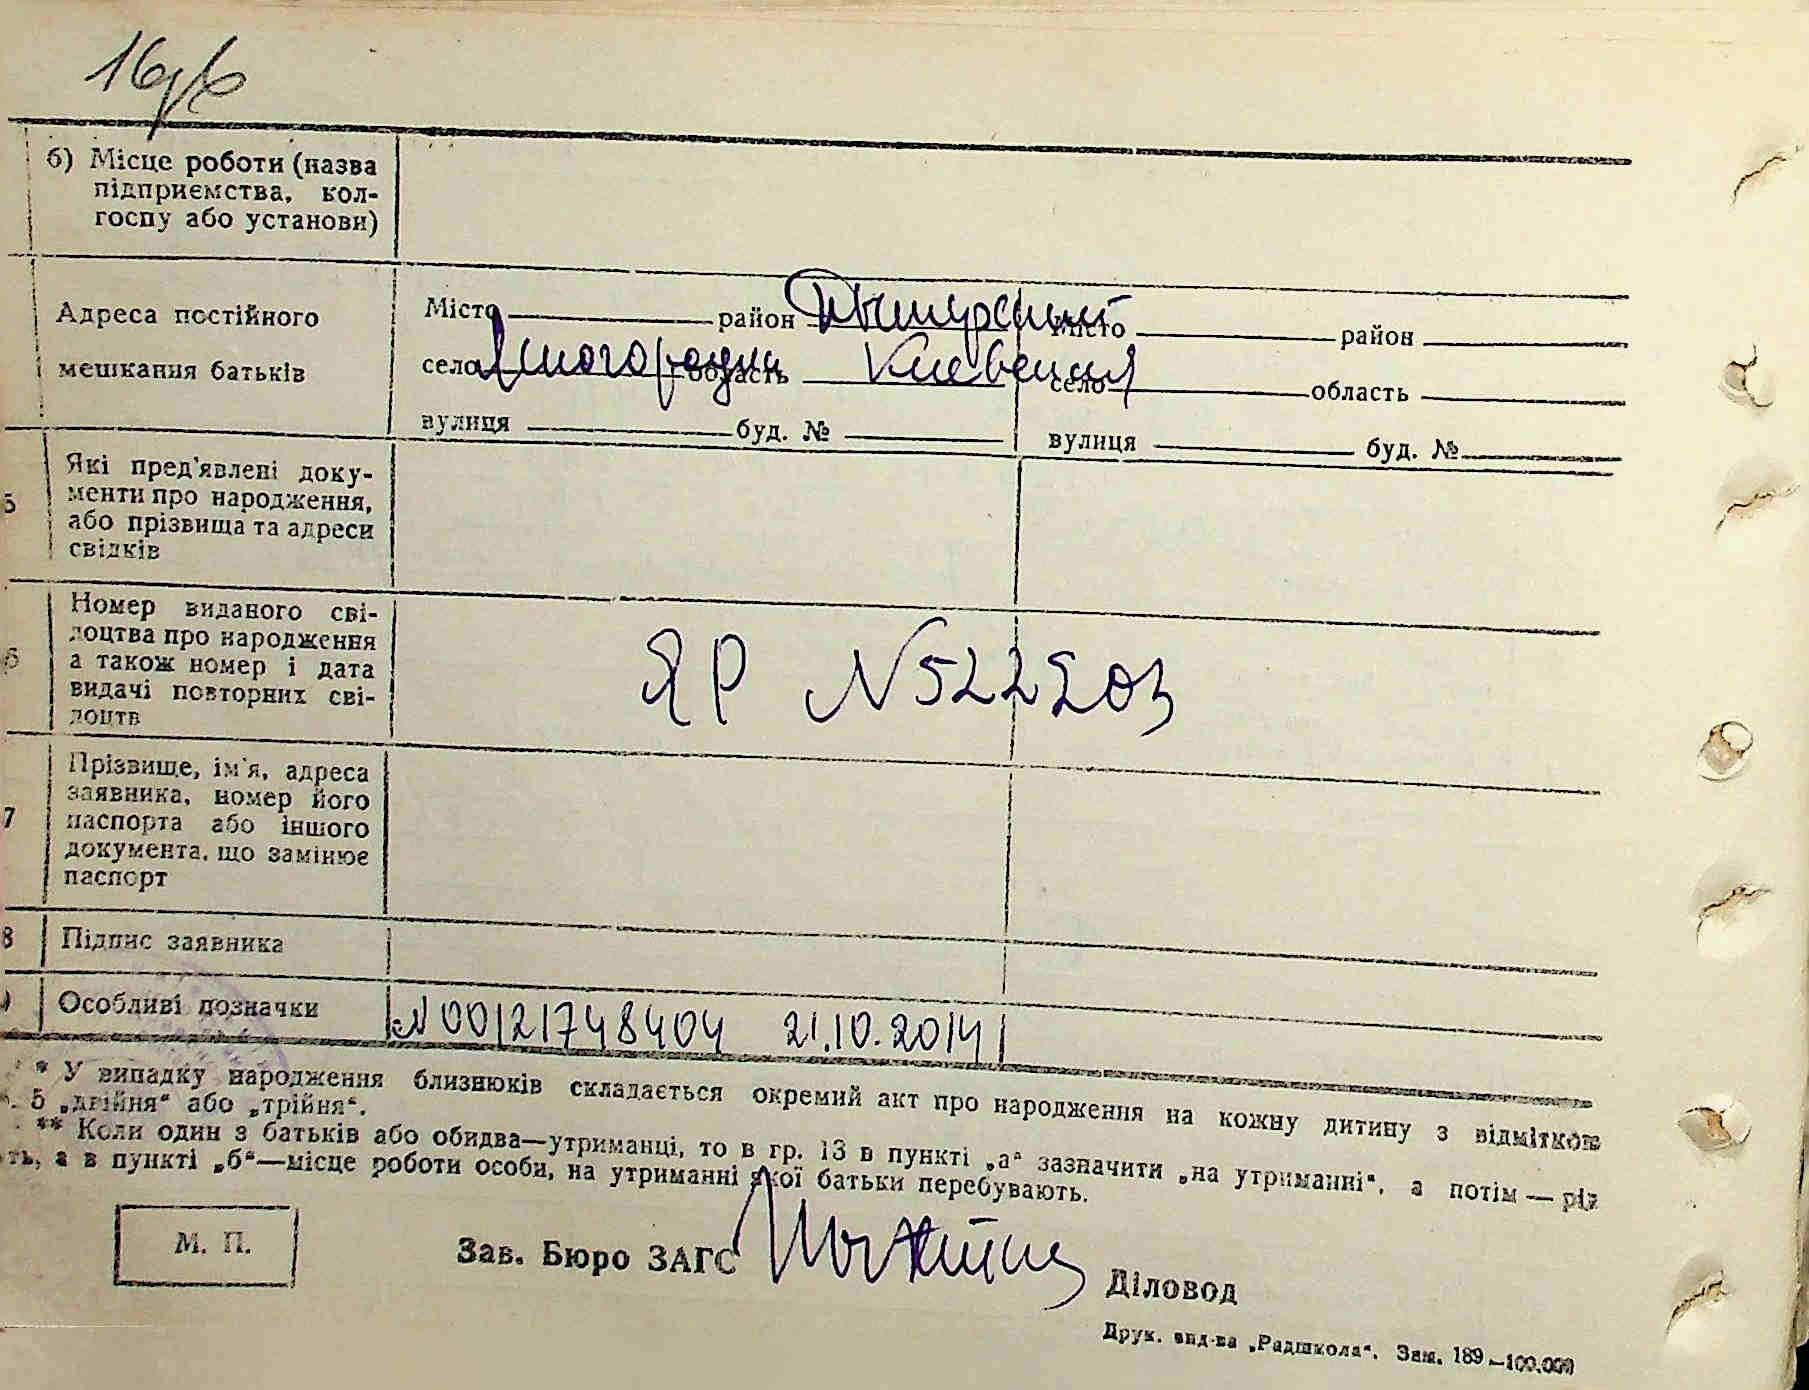 б) Місце роботи (назва
підприємства, кол-
госпу або установи)
Адреса постійного
мешкання батьків
Місто район
село область Киевская
вулиця буд. №
Місто район
село область
вулиця буд. №
5 Які пред'явлені доку-
менти про народження,
або прізвища та адреси
свідків
6 Номер виданого сві-
доцтва про народження
а також номер і дата
видачі повторних сві-
доцтв
ЯР N522203
7 Прізвище, ім'я, адреса
заявника, номер його
паспорта або іншого
документа, що замінює
паспорт
8 Підпис заявника
Особливі позначки
N 00121748404 21.10.2014
* У випадку народження близнюків складається окремий акт про народження на кожну дитину з відміткою
5 „двійня“ або „трійня“.
** Коли один з батьків або обидва—утриманці, то в гр. 13 в пункті „а“ зазначити „на утриманні“, а потім — рід
ть, а в пункті „б“—місце роботи особи, на утриманні якої батьки перебувають.
М. П.
Зав. Бюро ЗАГС
Діловод
Друк. вид-ва „Радшкола“. Зам. 189—100.000